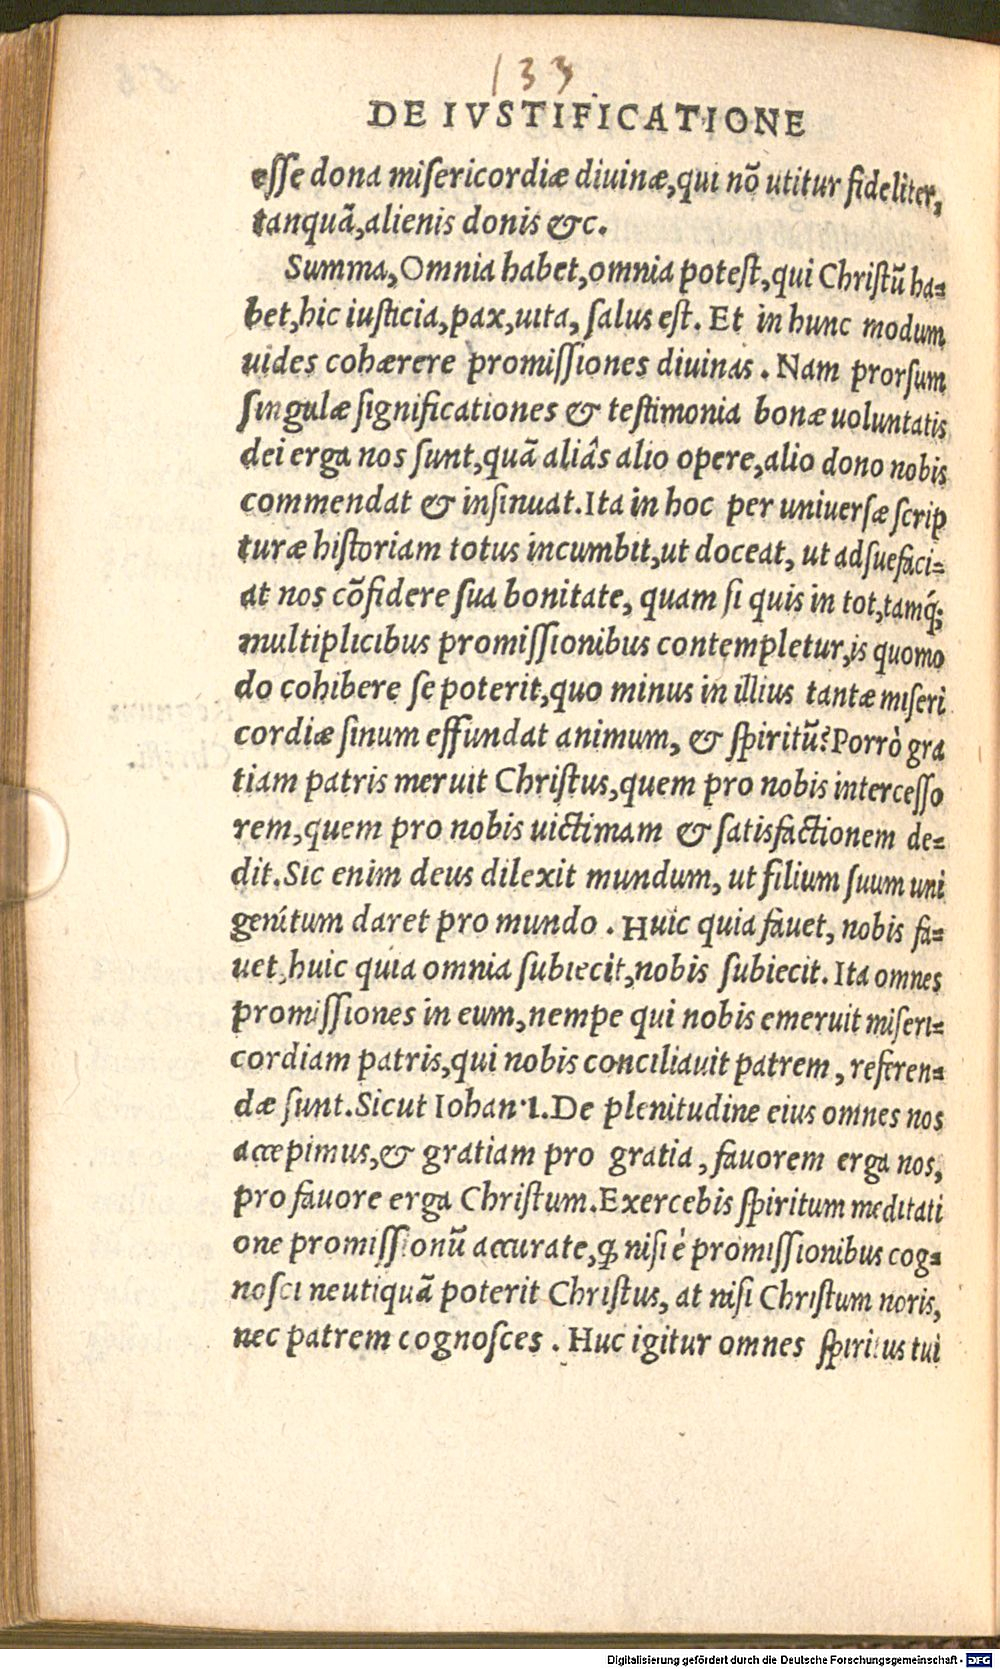 133
DE IVSTIFICATIONE
esse dona misericordiæ diuinæ,qui nõ utitur fideliter,
tanquã,alienis donis &c.
Summa,Omnia habet,omnia potest,qui Christũ ha=
bet,hic iusticia,pax,uita, salus est. Et in hunc modum
uides cohærere promissiones diuinas. Nam prorsum
singulæ significationes & testimonia bonæ uoluntatis
dei erga nos sunt,quã aliâs alio opere,alio dono nobis
commendat & insinuat.Ita in hoc per uniuersæ scrip
turæ historiam totus incumbit,ut doceat, ut adsuefaci=
at nos cõfidere sua bonitate, quam si quis in tot,tamq́;
multiplicibus promissionibus contempletur,is quomo
do cohibere se poterit,quo minus in illius tantæ miseri
cordiæ sinum effundat animum, & spiritũ?Porrò gra
tiam patris meruit Christus,quem pro nobis intercesso
rem,quem pro nobis uictimam & satisfactionem de=
dit.Sic enim deus dilexit mundum, ut filium suum uni
genitum daret pro mundo. Huic quia fauet, nobis fa=
uet,huic quia omnia subiecit,nobis subiecit. Ita omnes
promissiones in eum,nempe qui nobis emeruit miseri=
cordiam patris,qui nobis conciliauit patrem, referen=
dæ sunt.Sicut Iohan.1.De plenitudine eius omnes nos
accepimus,& gratiam pro gratia, fauorem erga nos,
pro fauore erga Christum.Exercebis spiritum meditati
one promissionũ accurate,ꝙ nisi è promissionibus cog=
nosci neutiquã poterit Christus, at nisi Christum noris,
nec patrem cognosces. Huc igitur omnes spiritus tui
Digitalisierung gefördert durch die Deutsche Forschungsgemeinschaft - DFG